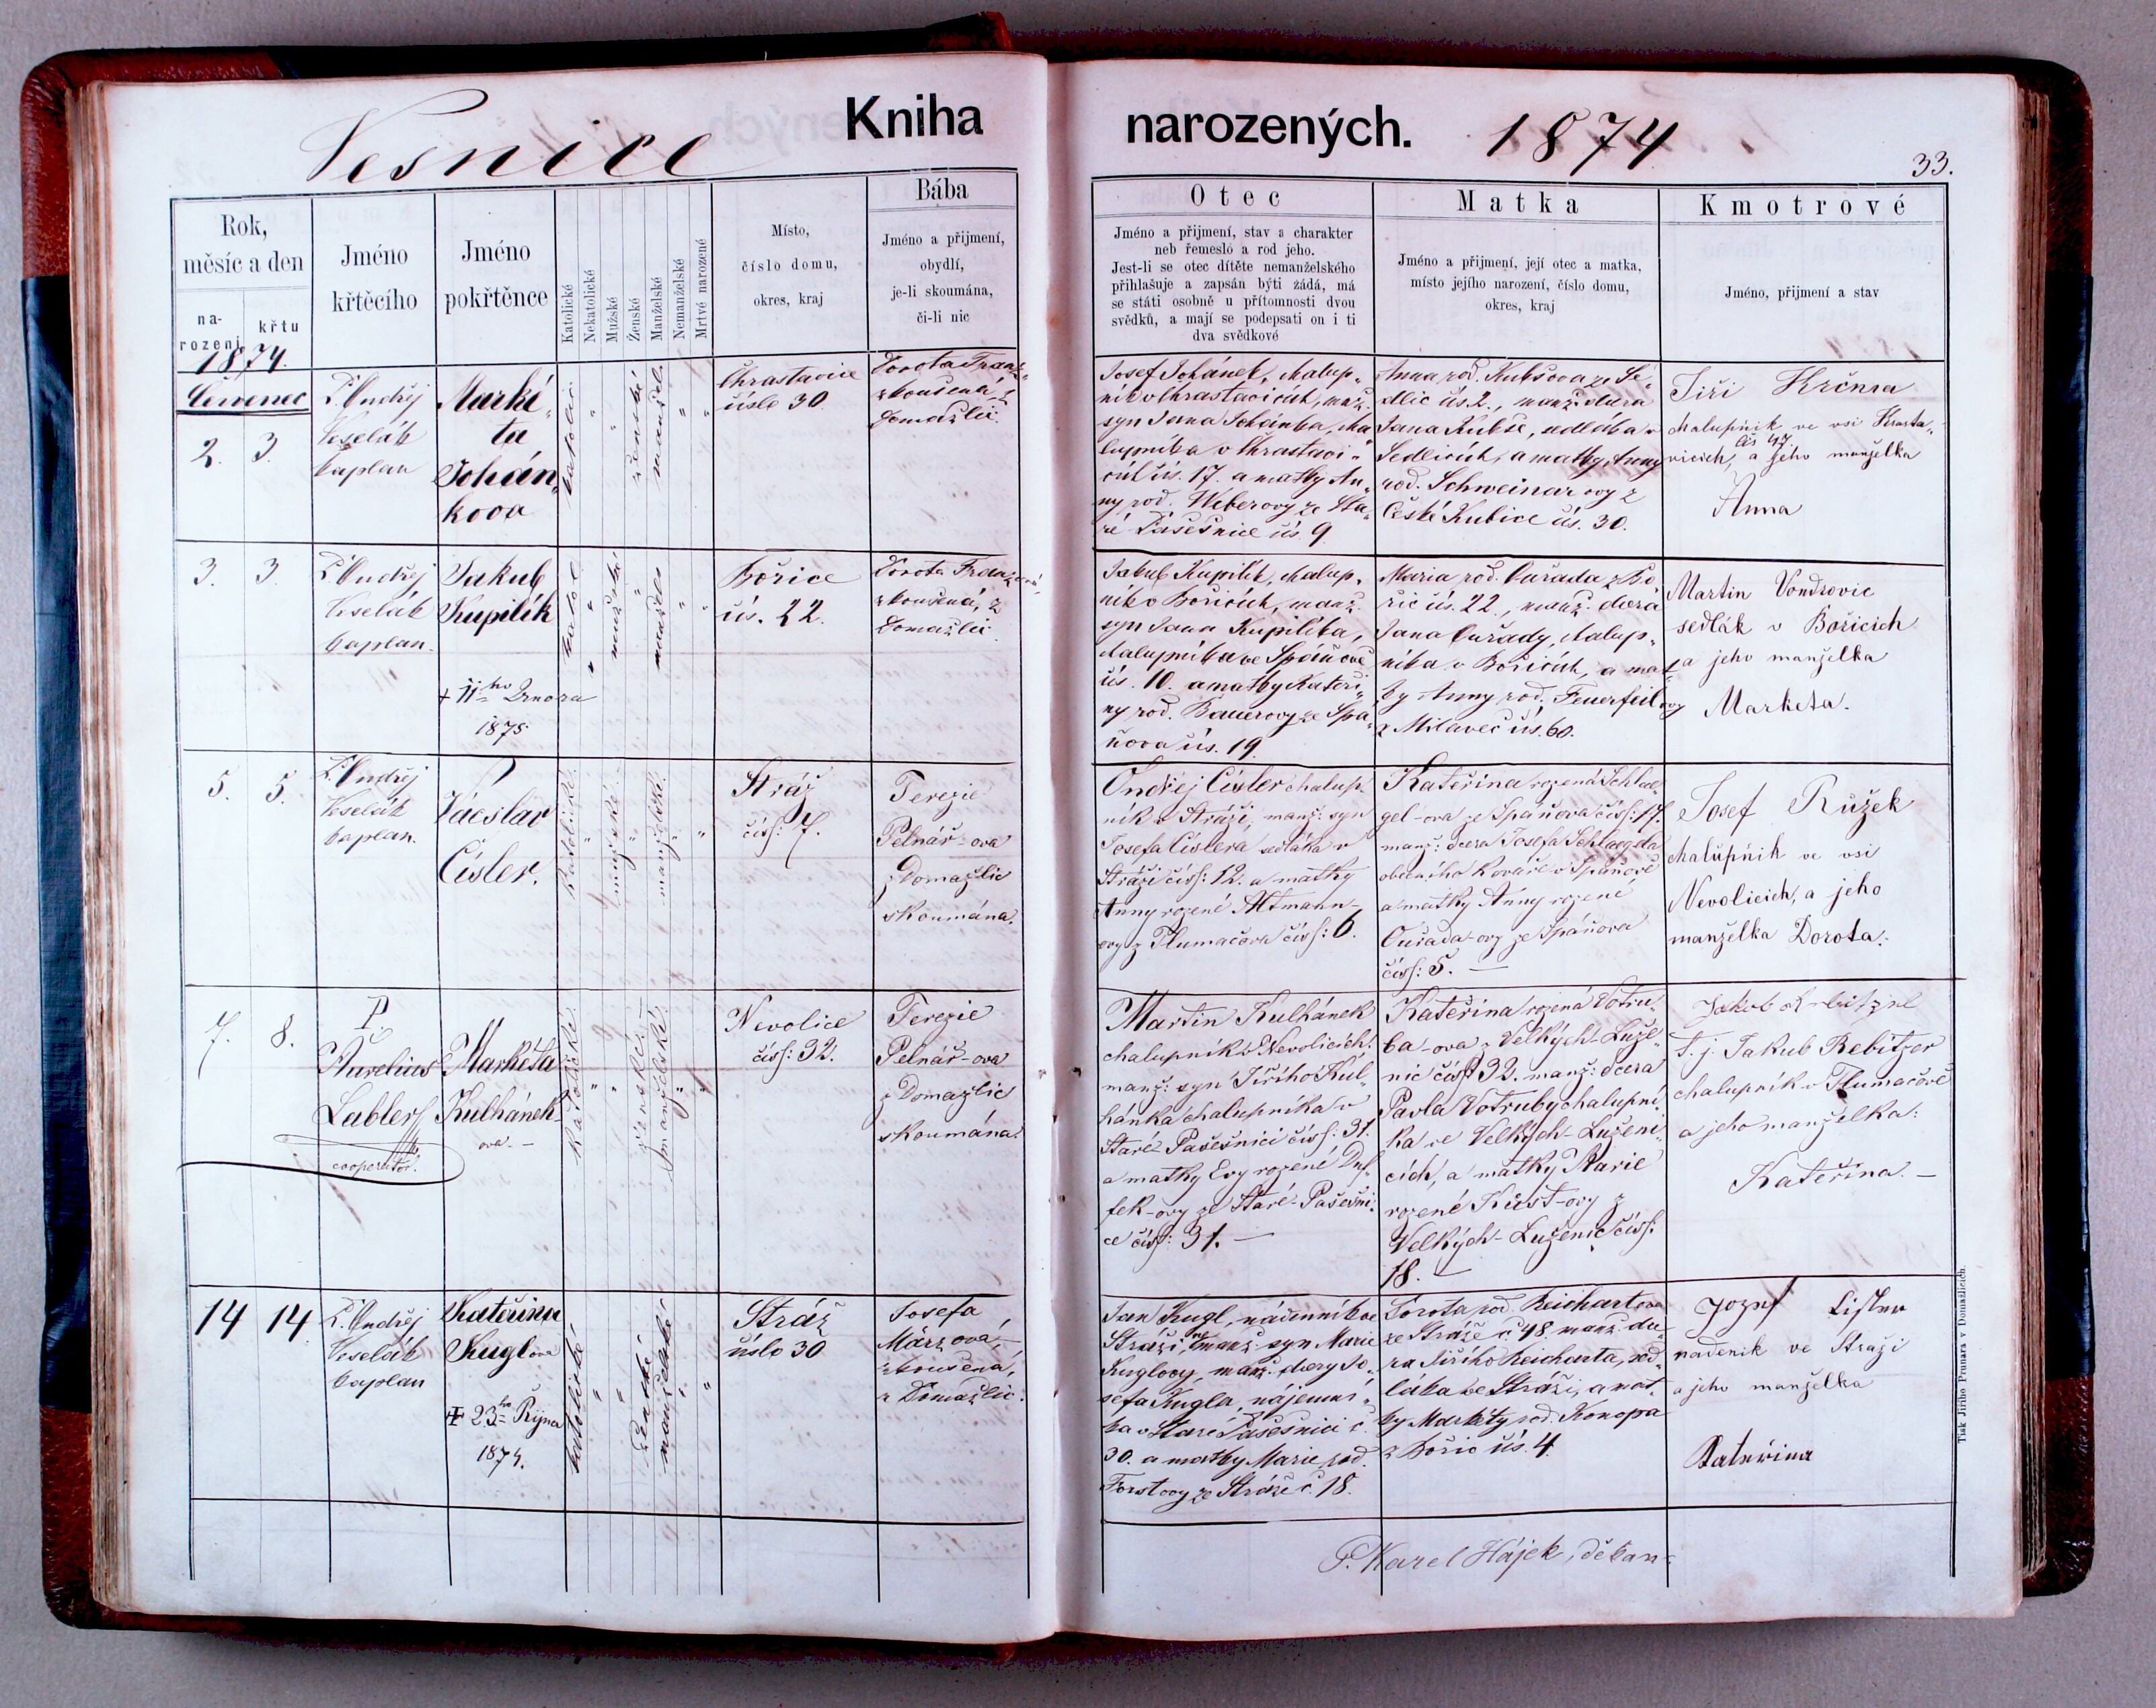 Vesnice
Kniha
narozených.
1874
33.
Rok,
měsíc a den
na-
rození
křtu
Jméno
křtěcího
Jméno
pokřtěnce
Katolické
Nekatolické
Mužské
Ženské
Manželské
Nemanželské
Mrtvé narozené
Místo,
číslo domu,
okres, kraj
Bába
Jméno a příjmení,
obydlí,
je-li skoumána,
či-li nic
Otec
Jméno a příjmení, stav a charakter
neb řemeslo a rod jeho.
Jest-li se otec dítěte nemanželského
přihlašuje a zapsán býti žádá, má
se státi osobně u přítomnosti dvou
svědků, a mají se podepsati on i ti
dva svědkové
Matka
Jméno a příjmení, její otec a matka,
místo jejího narození, číslo domu,
okres, kraj
Kmotrové
Jméno, příjmení a stav
1874.
Červenec
2. 3.
P. Ondřej
Veselák
kaplan
Marké-
ta
Johán-
kova
katolic.
ženské
manžel.
Chrastavice
číslo 30.
Dorota Franz-
zkoušená, z
Domažlic.
Josef Johánek, chalup-
ník v Chrastavicích, manž.
syn Jana Johánka, cha
lupníka v Chrastavi-
cích čís. 17. a matky An-
ny rod. Weberovy ze Sta-
ré Pašešnice čís. 9
Anna rod. Kubšova ze Se-
dlic čís. 2., manž. dcera
Jana Kubše, sedláka v
Sedlicích, a matky Anny
rod. Schweinarovy z
České Kubice čís. 30.
Jiří Krčma
chalupník ve vsi Hrasta-
čís 47
vicích, a jeho manželka
Anna
3. 3.
P. Ondřej
Veselák
kaplan.
Jakub
Kupilík
+ 11ho Února
1875.
katol.
mužské
manžels
Bořice
čís. 22.
Dorota Franzová,
zkoušená, z
Domažlic.
Jakub Kupilík, chalup-
ník v Bořicích, manž.
syn Jana Kupilíka,
chalupníka ve Spáňově
čís. 10. a matky Kateři-
ny rod. Bauerovy ze Spá-
ňova čís. 19.
Maria rod. Cuřada z Bo
řic čís. 22., manž. dcera
Jana Cuřady, chalup-
níka v Bořicích, a mat-
ky Anny rod. Feuerfeilovy
z Milaveč čís. 60.
Martin Vondrovic
sedlák v Bořicích
a jeho manželka
Marketa.
5. 5.
P. Ondřej
Veselák
kaplan.
Václav
Císler.
Katolické.
mužské.
manželské.
Stráž
čís: 7.
Terezie
Pelnář-ova
z Domažlic
skoumána.
Ondřej Císler chalup-
ník v Stráži, manž: syn
Josefa Císlera sedláka v
Stráži čís: 12. a matky
Anny rozené Altmann-
ovy z Tlumačova čís: 6.
Kateřina rozená Schlae-
gel-ova ze Spáňova čís: 17.
manž: dcera Josefa Schlaegela
obecního kováře v Spáňově
a matky Anny rozené
Cuřada-ovy ze Spáňova
čís: 5. —
Josef Růžek
chalupník ve vsi
Nevolicích, a jeho
manželka Dorota.
7. 8.
P.
Aurelius
Lubler
cooperator.
Markéta
Kulhánek-
ova. —
Katolické.
ženské.
manželské.
Nevolice
čís: 32.
Terezie
Pelnář-ova
z Domažlic
skoumána.
Martin Kulhánek
chalupník v Nevolicích
manž: syn Jiřího Kul-
hánka chalupníka v
Staré Pašešnici čís: 31.
a matky Evy rozené Duf-
fek-ovy ze Staré-Pašešni-
ce čís: 31. —
Kateřina rozená Votru-
ba-ova z Velkých-Luže-
nic čís: 32. manž: dcera
Pavla Votruby chalupní-
ka ve Velkých-Luženi-
cích, a matky Marie
rozené Küst-ovy z
Velkých-Luženic čís:
18. —
t. j. Jakub Rebitzer
chalupník v Tlumačově
a jeho manželka:
Kateřina. —
14 14
P. Ondřej
Veselák
kaplan
Kateřina
Kuglova
+ 23ho Října
1874.
katolické
ženské
manželské
Stráž
číslo 30
Josefa
Märzová,
zkoušená,
z Domažlic.
Jan Kugl, nádenník ve
Stráži, manž. syn Marie
Kuglovy, manž. dcery Jo-
sefa Kugla, nájemní-
ka v Staré Pašešnici č.
30. a matky Marie rod.
Forstovy ze Stráže č. 18.
Dorota rod. Reichartova
ze Stráže č 48. manž. dce-
ra Jiřího Reicharta, sed-
láka ve Stráži, a mat-
ky Markéty rod. Konopa
z Bořic čís. 4.
Jozef Lisler
nádenik ve Straži
a jeho manželka
Kateřina
P. Karel Hájek, děkan
Tisk Jiřího Prunara v Domažlicích.